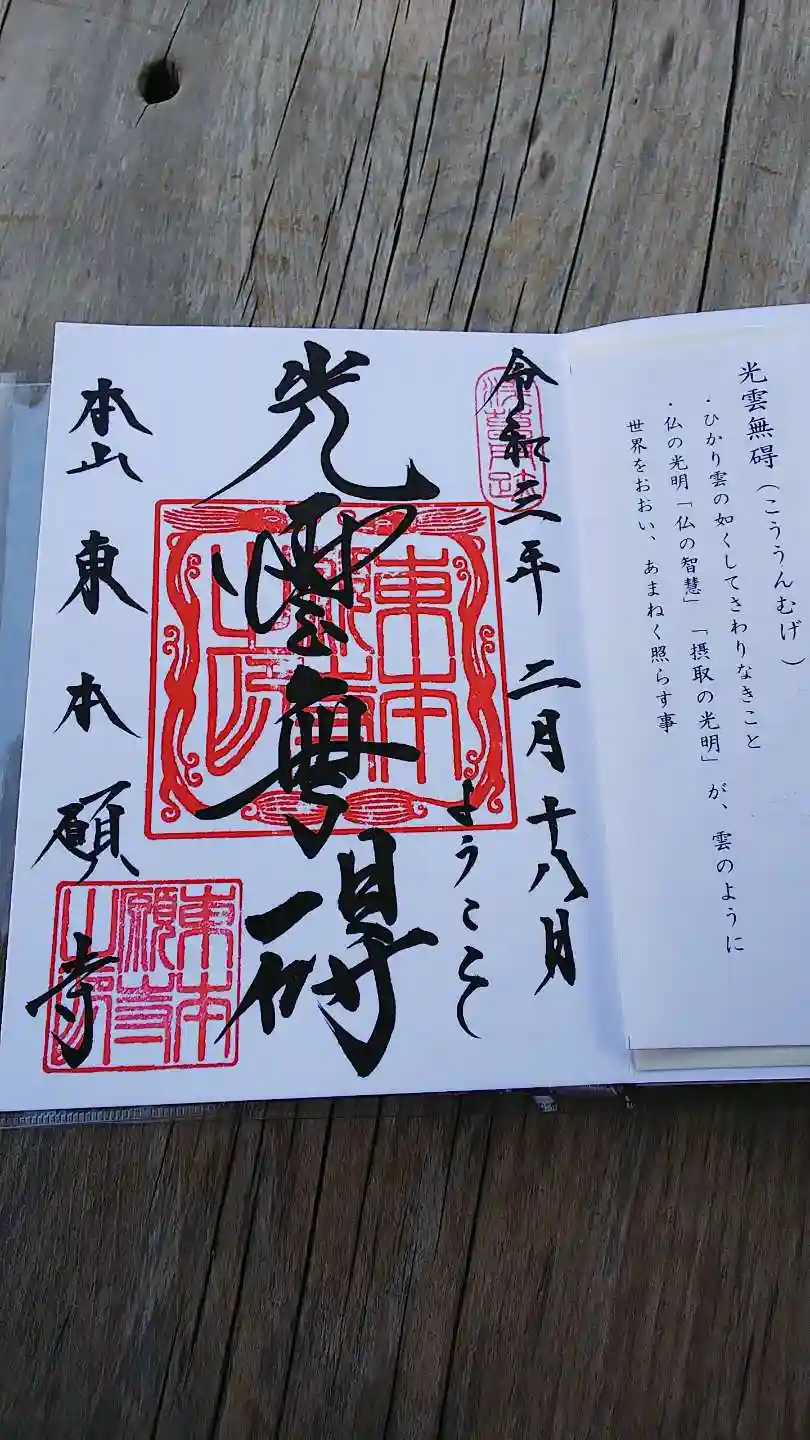 光雲無碍（こううんむげ）
・ひかり雲の如くしてさわりなきこと
・仏の光明「仏の智慧」「摂取の光明」が、雲のように
世界をおおい、あまねく照らす事
令和三年 二月十八日
ようこそ
光雲無碍
東本願寺之印
本山 東本願寺
東本願寺之印